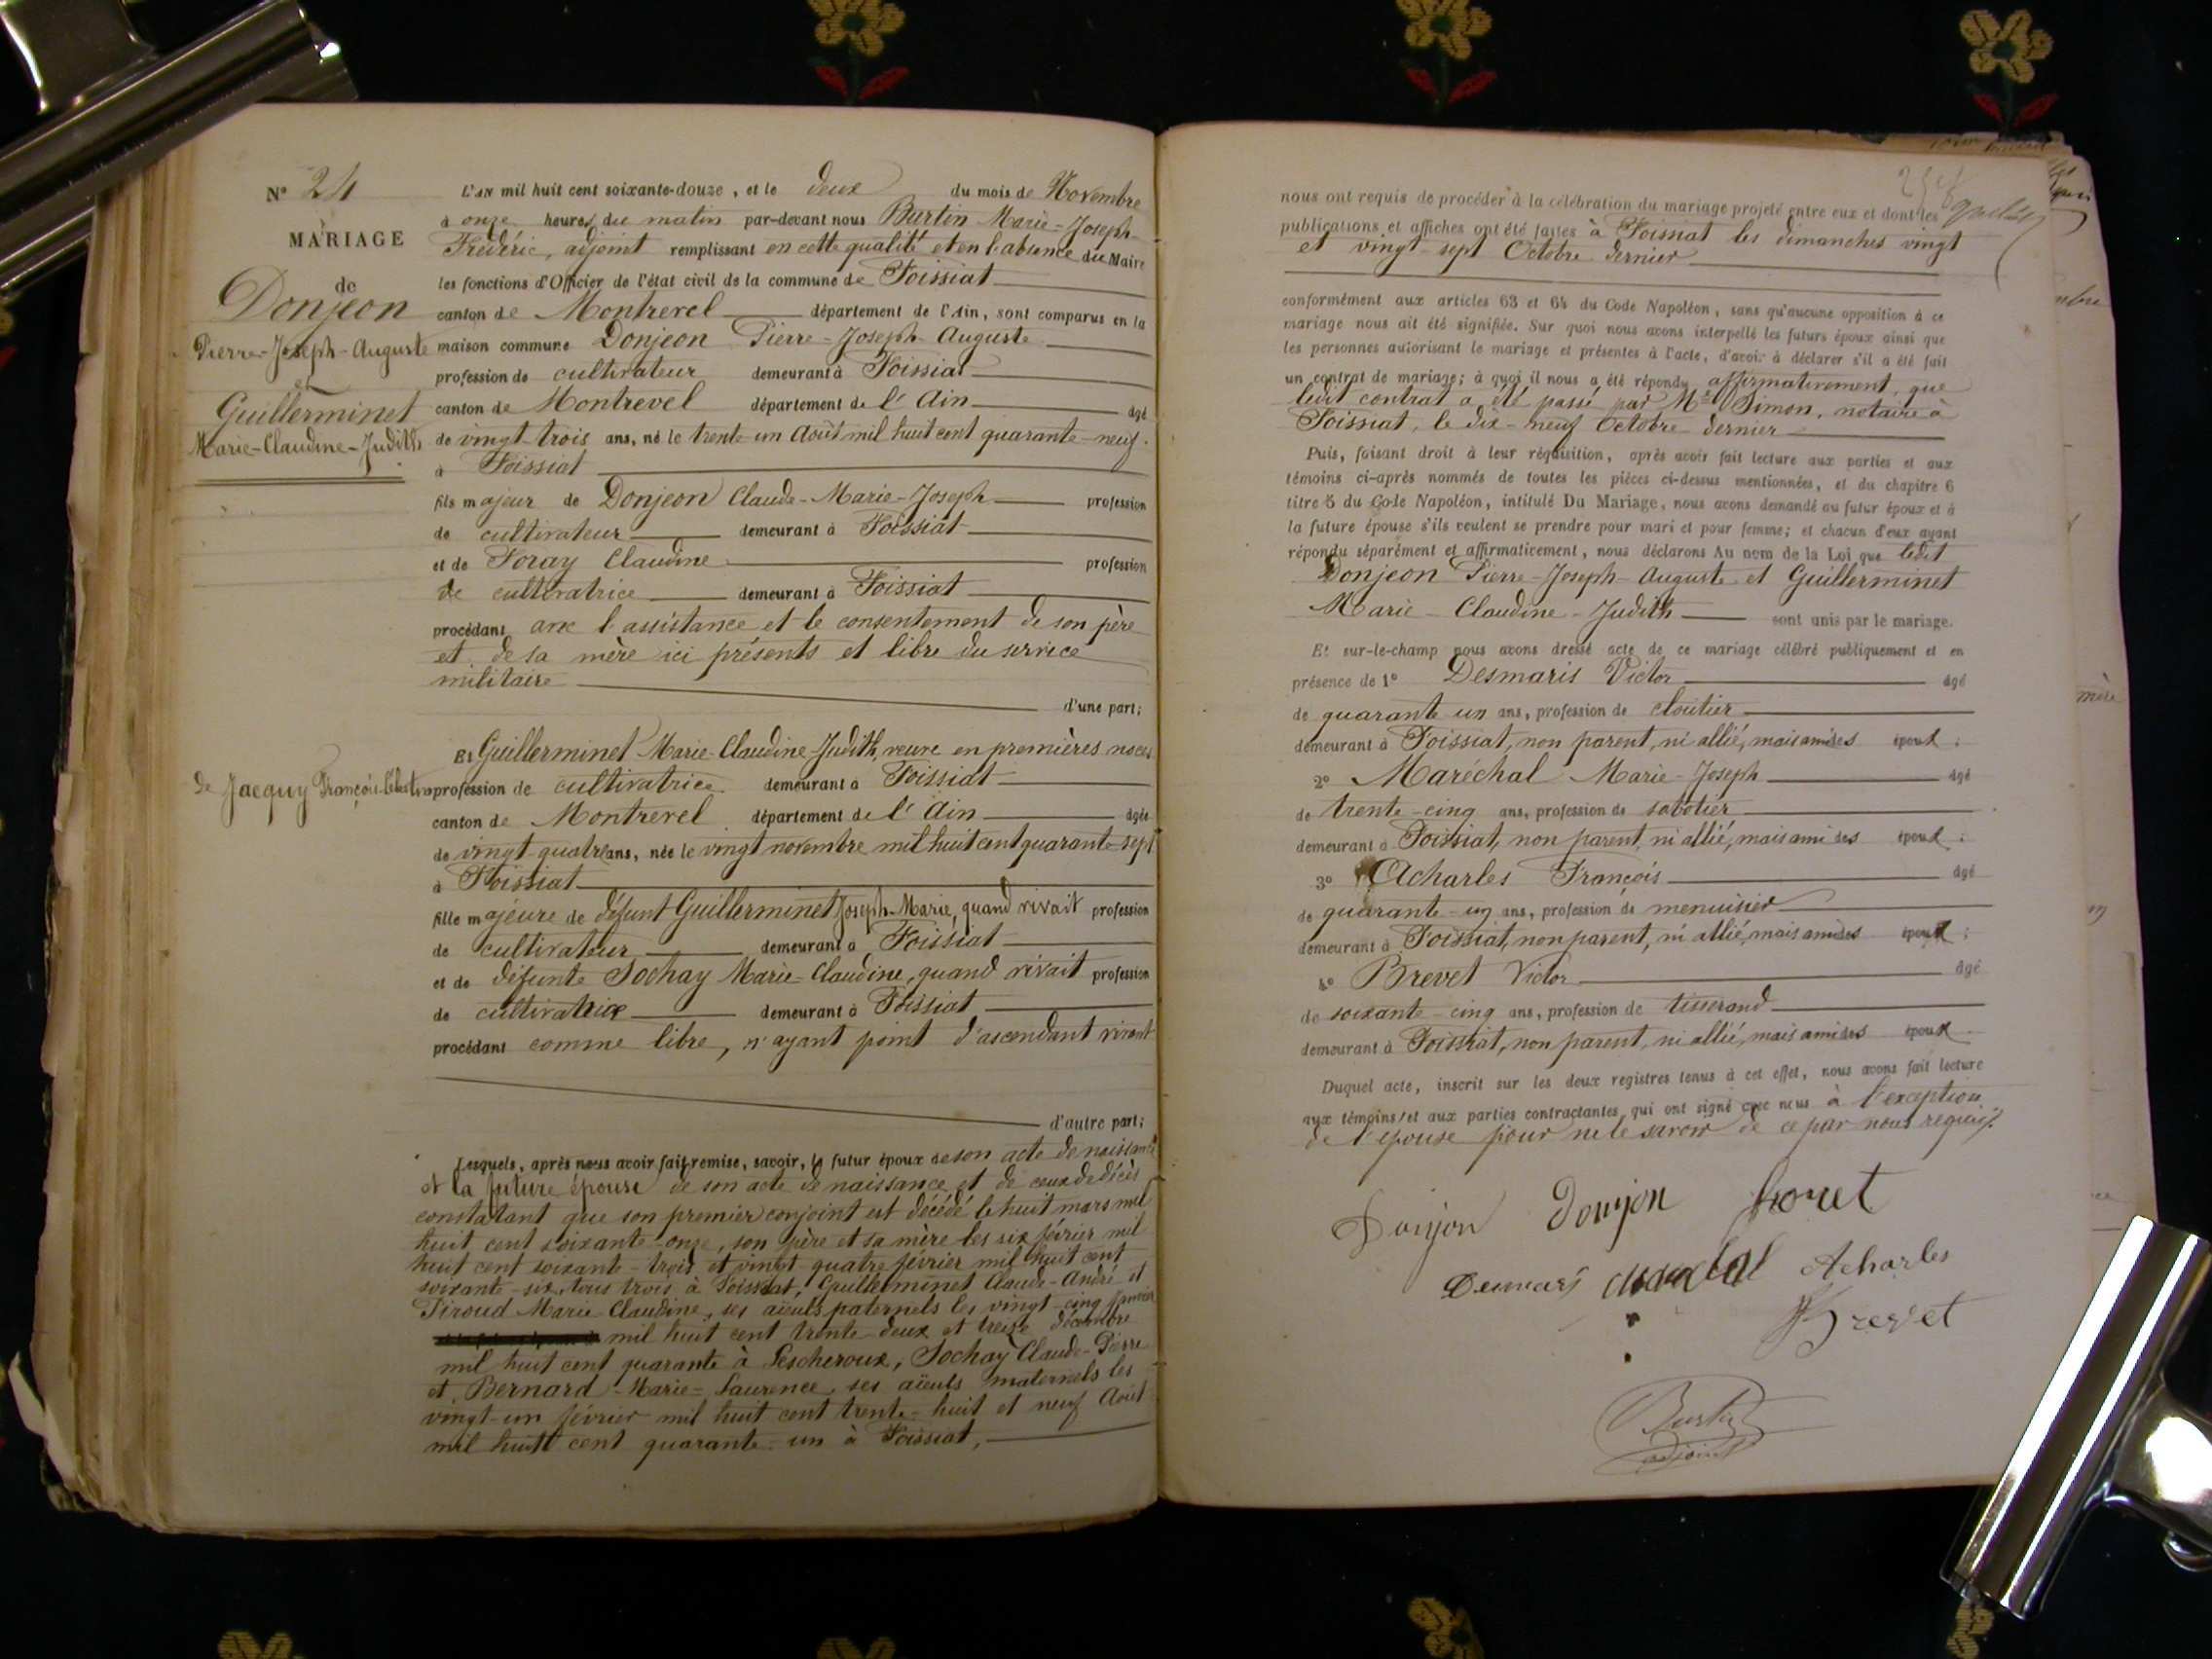 N° 24
MARIAGE
de
Donjeon
Pierre-Joseph-Auguste
et
Guillerminet
Marie-Claudine-Judith
L'AN mil huit cent soixante-douze, et le deux du mois de Novembre
à onze heures du matin par-devant nous Burtin Marie-Joseph-
Frédéric, adjoint remplissant en cette qualité et en l'absence du Maire
les fonctions d'Officier de l'état civil de la commune de Foissiat
canton de Montrevel département de l'Ain, sont comparus en la
maison commune Donjeon Pierre-Joseph-Auguste
profession de cultivateur demeurant à Foissiat
canton de Montrevel département de l'Ain âgé
de vingt-trois ans, né le trente-un Août mil huit cent quarante-neuf.
à Foissiat
fils majeur de Donjeon Claude-Marie-Joseph profession
de cultivateur demeurant à Foissiat
et de Foray Claudine profession
de cultivatrice demeurant à Foissiat
procédant avec l'assistance et le consentement de son père
et de sa mère ici présents et libre du service
militaire
d'une part;
Et Guillerminet Marie-Claudine-Judith, veuve en premières noces
de Jacquy François-Célestin profession de cultivatrice demeurant à Foissiat
canton de Montrevel département de l'Ain âgée
de vingt-quatre ans, née le vingt novembre mil huit cent quarante-sept
à Foissiat
fille majeure de défunt Guillerminet Joseph-Marie, quand vivait profession
de cultivateur demeurant à Foissiat
et de défunte Sochay Marie-Claudine, quand vivait profession
de cultivatrice demeurant à Foissiat
procédant comme libre, n'ayant point d'ascendant vivant
d'autre part;
Lesquels, après nous avoir fait remise, savoir, le futur époux de son acte de naissance
et la future épouse de son acte de naissance et de ceux de décès
constatant que son premier conjoint est décédé le huit mars mil
huit cent soixante-onze, son père et sa mère les six février mil
huit cent soixante-trois et vingt-quatre février mil huit cent
soixante-six, tous trois à Foissiat, Guillerminet Claude-André et
Piroud Marie-Claudine, ses aïeuls paternels les vingt-cinq janvier
mil huit cent trente-deux et treize décembre
mil huit cent quarante à Lescheroux, Sochay Claude-Pierre
et Bernard-Marie-Laurence, ses aïeuls maternels les
vingt-un février mil huit cent trente-huit et neuf Août
mil huit cent quarante-un à Foissiat,
nous ont requis de procéder à la célébration du mariage projeté entre eux et dont les
publications et affiches ont été faites à Foissiat les dimanches vingt
et vingt-sept Octobre dernier
conformément aux articles 63 et 64 du Code Napoléon, sans qu'aucune opposition à ce
mariage nous ait été signifiée. Sur quoi nous avons interpellé les futurs époux ainsi que
les personnes autorisant le mariage et présentes à l'acte, d'avoir à déclarer s'il a été fait
un contrat de mariage; à quoi il nous a été répondu affirmativement, que
ledit contrat a été passé par Me Simon, notaire à
Foissiat, le dix-neuf Octobre dernier
Puis, faisant droit à leur réquisition, après avoir fait lecture aux parties et aux
témoins ci-après nommés de toutes les pièces ci-dessus mentionnées, et du chapitre 6
titre 5 du Code Napoléon, intitulé Du Mariage, nous avons demandé au futur époux et à
la future épouse s'ils veulent se prendre pour mari et pour femme; et chacun d'eux ayant
répondu séparément et affirmativement, nous déclarons Au nom de la Loi que ledit
Donjeon Pierre-Joseph-Auguste et Guillerminet
Marie-Claudine-Judith sont unis par le mariage.
Et sur-le-champ nous avons dressé acte de ce mariage célébré publiquement et en
présence de 1° Desmaris Victor âgé
de quarante un ans, profession de cloutier
demeurant à Foissiat, non parent, ni allié, mais ami des époux;
2° Maréchal Marie-Joseph âgé
de trente-cinq ans, profession de sabotier
demeurant à Foissiat, non parent, ni allié, mais ami des époux;
3° Acharles François âgé
de quarante-un ans, profession de menuisier
demeurant à Foissiat, non parent, ni allié, mais ami des époux;
4° Brevet Victor âgé
de soixante-cinq ans, profession de tisserand
demeurant à Foissiat, non parent, ni allié, mais ami des époux.
Duquel acte, inscrit sur les deux registres tenus à cet effet, nous avons fait lecture
aux témoins et aux parties contractantes qui ont signé avec nous à l'exception
de l'épouse pour ne le savoir de ce par nous requis.
Donjon Donjon
Acharles
Brevet
adjoint